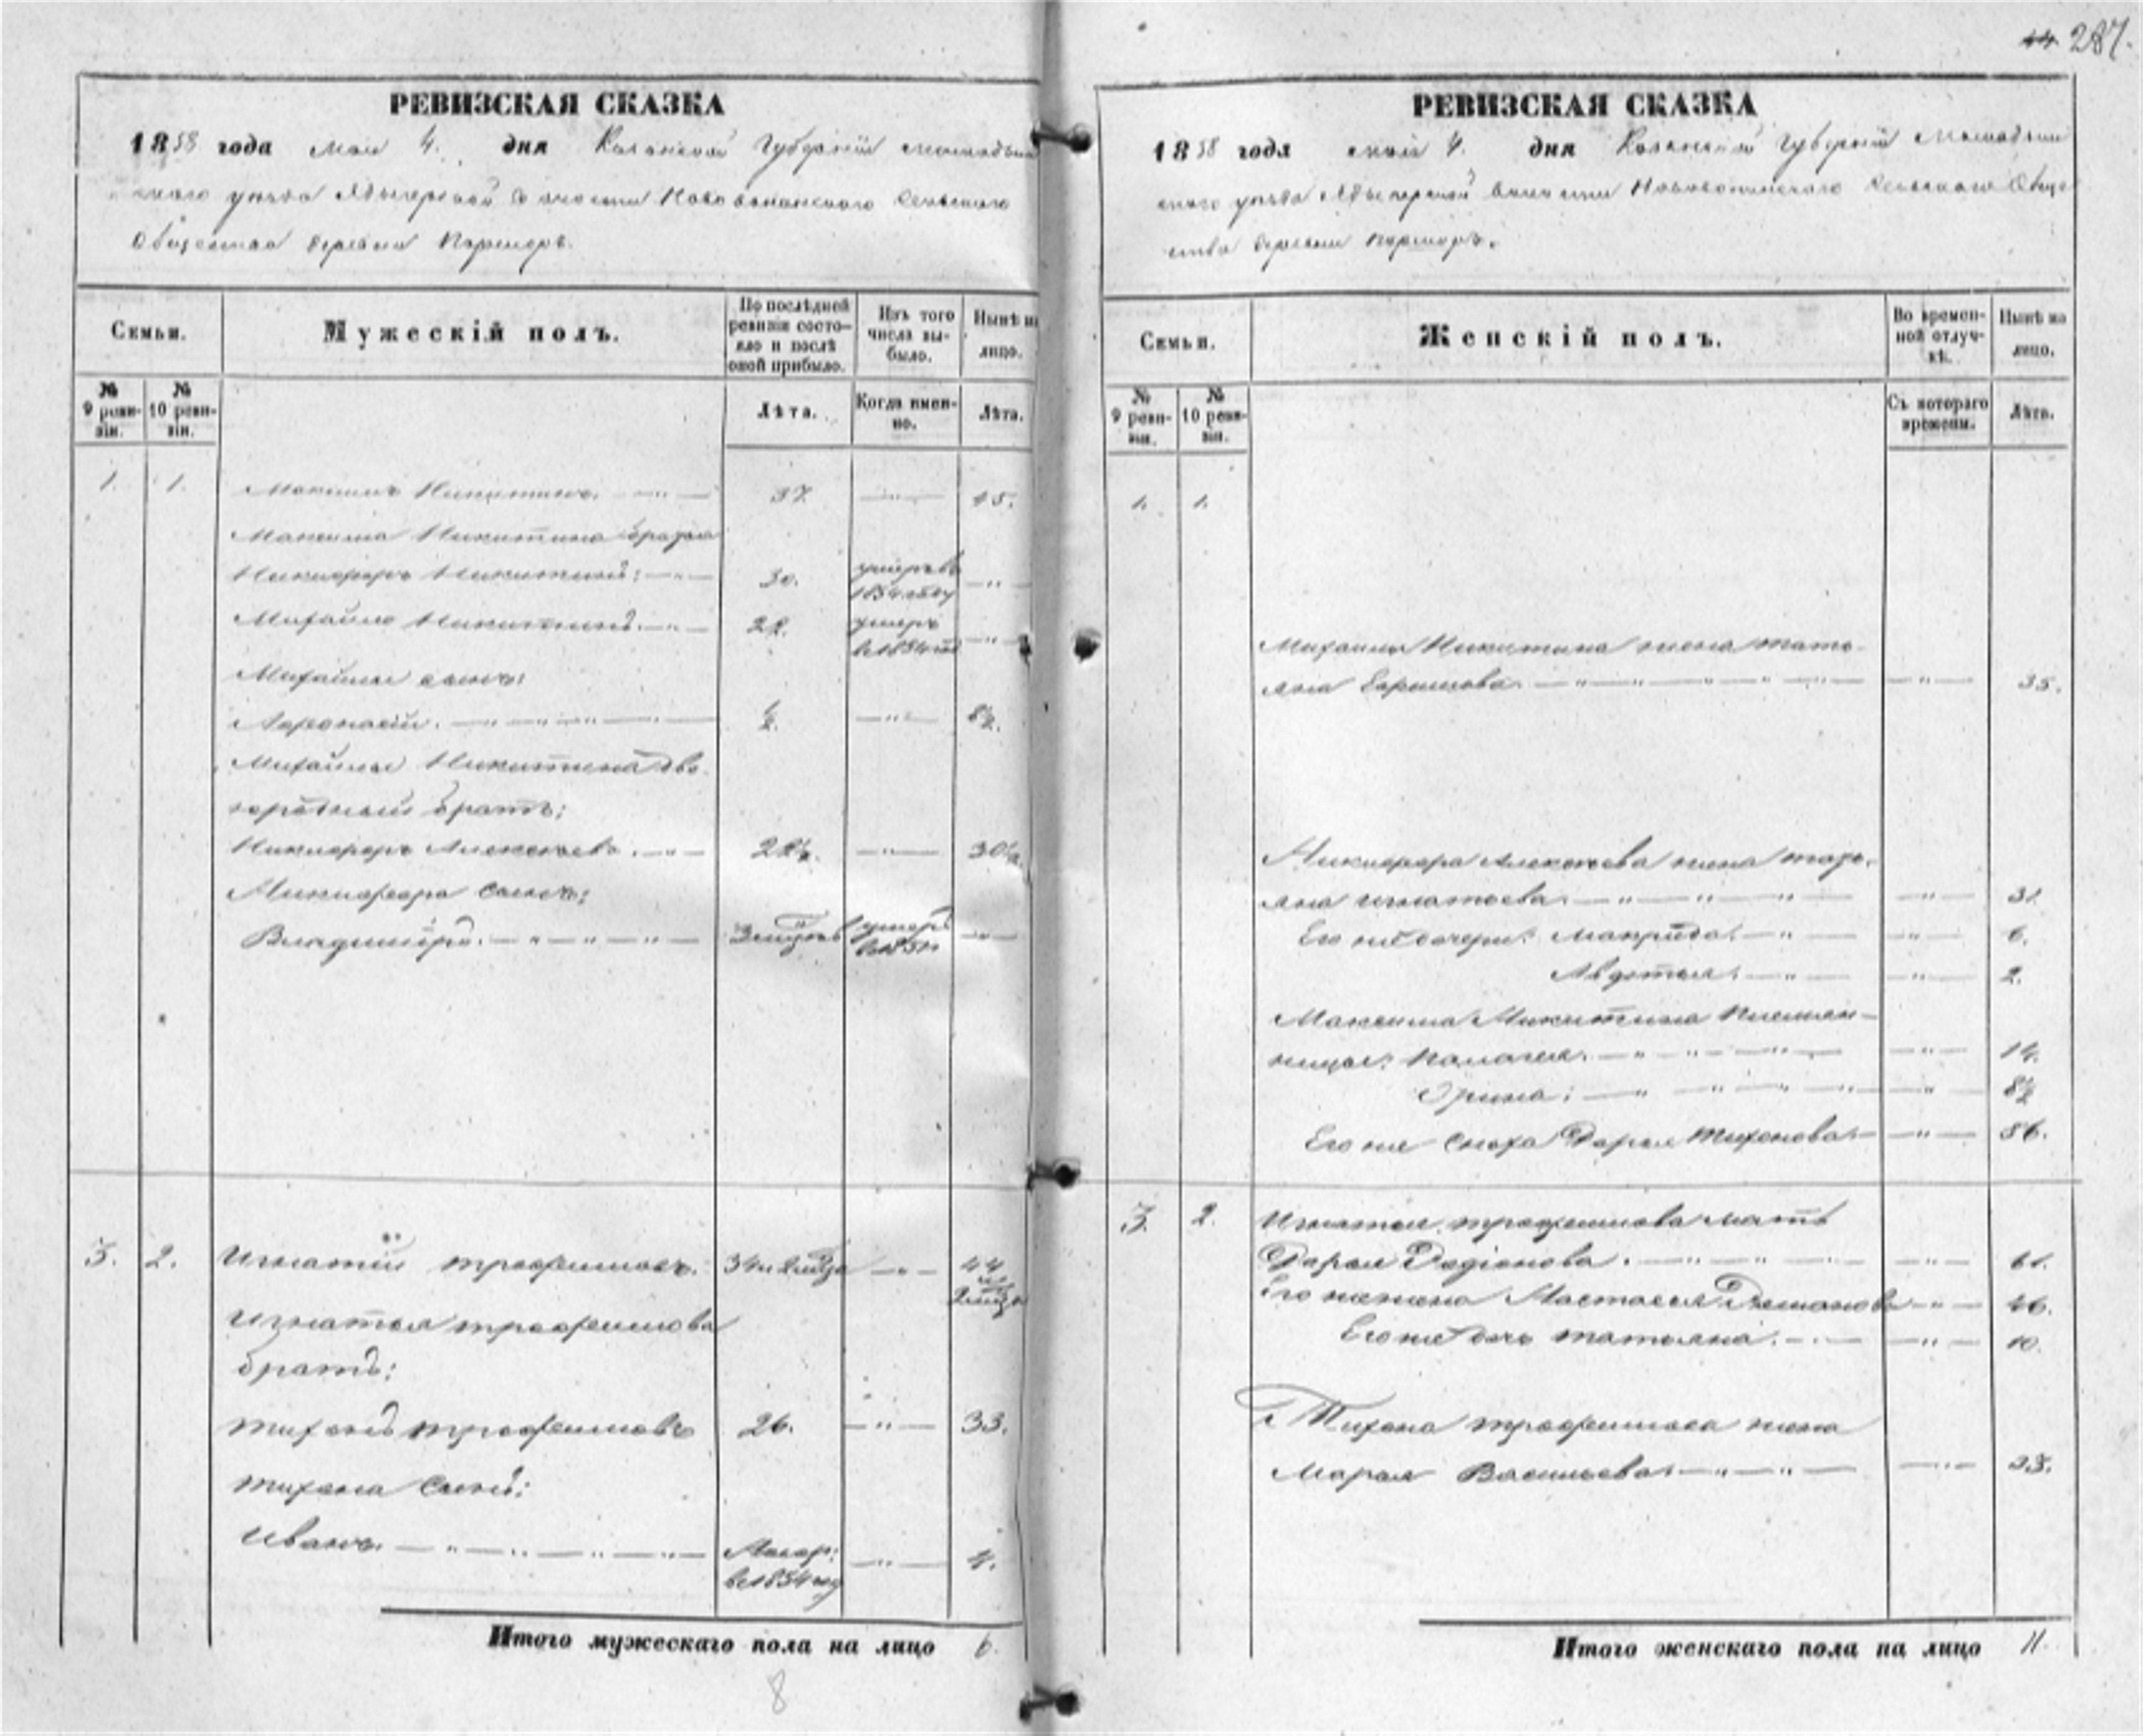 287.
РЕВИЗСКАЯ СКАЗКА
1858 года мая 4. дня Казанской Губернии
уезда волости сельского
Общества деревни
Семьи.
Мужескій полъ.
По послѣдней ревизіи состояло и послѣ оной прибыло.
Изъ того числа выбыло.
Нынѣ на лицо.
№ 9 ревизіи.
№ 10 ревизіи.
Лѣта.
Когда именно.
Лѣта.
1. 1. Максимъ Никитинъ. — " — 37 — " — 45.
Максима Никитина братья
Никифоръ Никитинъ: — " — 30. умеръ въ 1854 году — " —
Михайло Никитинъ. — " — 22. умеръ въ 1854 — " —
Михайлы сынъ:
Афонасій. — " — " — " — " — 1/2 — " — 8 1/2.
Михайлы Никитина дво-
юродный братъ:
Никифоръ Алексѣевъ. — " — 22 1/2. — " — 30 1/2.
Никифора сынъ:
Владиміръ. — " — " — " — умеръ — " —
3. 2. Игнатій Трофимовъ. 34 и — " — 44 и
Игнатья Трофимова
братъ:
Тихонъ Трофимовъ 26. — " — 33.
Тихона сынъ:
Иванъ. — " — " — " — " — въ 1854 году — " — 4.
Итого мужескаго пола на лицо 6.
8
РЕВИЗСКАЯ СКАЗКА
1858 года мая 4. дня Казанской Губерніи
уезда волости сельского Обще-
ства деревни
Семьи.
Женскій полъ.
Во временной отлучкѣ.
Нынѣ на лицо.
№ 9 ревизіи.
№ 10 ревизіи.
Съ котораго времени.
Лѣта.
1. 1.
Михайлы Никитина жена Тать-
яна — " — " — " — " — " — " — 35.
Никифора Алексѣева жена Тать-
яна Игнатьева. — " — " — " — " — " — 31.
Его же дочери: — " — " — 6.
Авдотья. — " — " — 2.
Максима Никитина племян-
ницы: Палагея. — " — " — " — " — 14.
Орина: — " — " — " — " — " — 8 1/2
Его же сноха Дарья Тихонова. — " — 56.
3. 2. Игнатья Трофимова мать
Дарья Радіонова. — " — " — " — 61.
Его же жена Настасья — " — 46.
Его же дочь Татьяна. — " — " — 10.
Тихона Трофимова жена
Марья Васильева. — " — " — " — 33.
Итого женскаго пола на лицо 11.